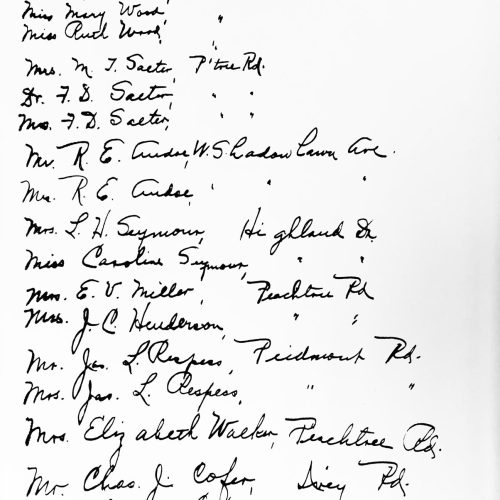 Miss Mary Wood, "
Miss Ruth Wood, "
Mrs. M. T. Salter, P'tree Rd.
Dr. F. D. Salter, " "
Mrs. F. D. Salter, " "
Mr. R. E. W. Shadowlawn Ave.
Mrs. R. E. " "
Mrs. L. H. Seymour, Highland Dr.
Miss Caroline Seymour, " "
Mrs. E. V. Miller, Peachtree Rd
Mrs. J. C. Henderson, " "
Mr. Jas. L. Respess, Piedmont Rd.
Mrs. Jas. L. Respess, " "
Mrs. Elizabeth Walker, Peachtree Rd.
Mr. Chas. J. Cofer, Ivey Rd.